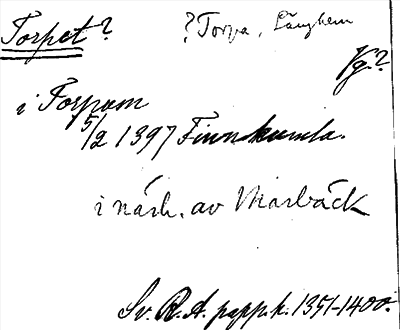 Torpet? ?Torpa, Länghem
Vg.?
i Torpum
5/2 1397 Finnekumla.
i närh. av Marbäck
Sv. R. A. papp.k. 1351-1400.